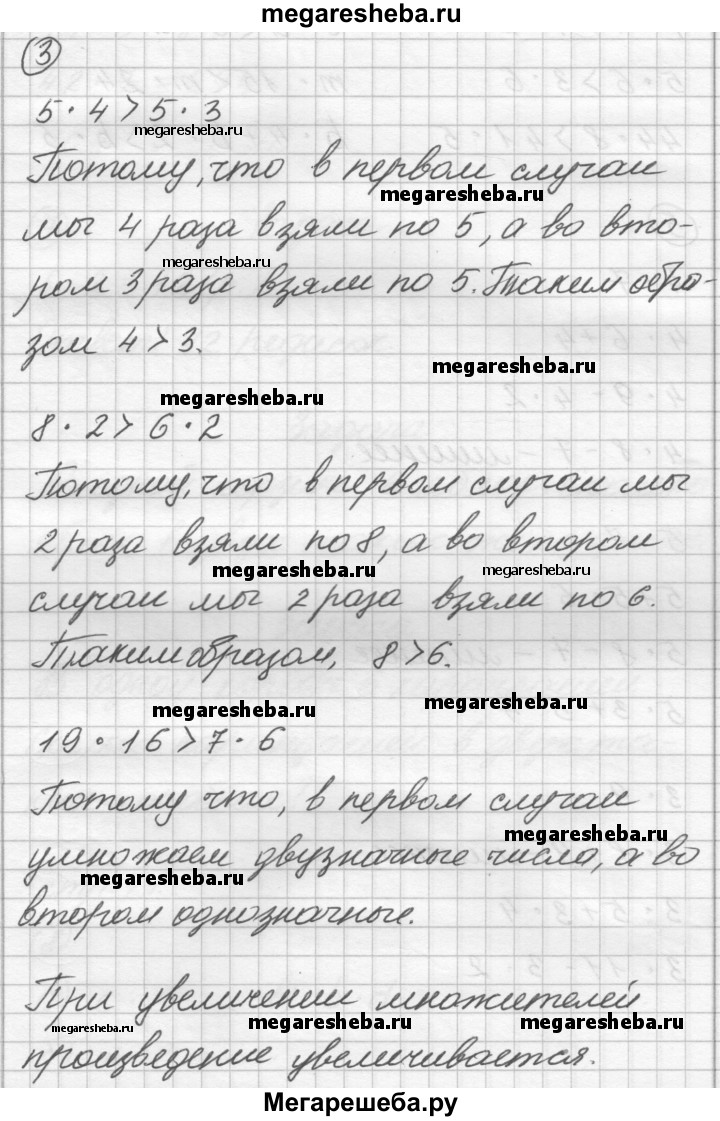 megaresheba.ru
3
5 · 4 > 5 · 3
megaresheba.ru
Потому, что в первом случаи
megaresheba.ru
мы 4 раза взяли по 5, а во вто-
megaresheba.ru
ром 3 раза взяли по 5. Таким обра-
зом 4 > 3.
megaresheba.ru
megaresheba.ru
8 · 2 > 6 · 2
Потому, что в первом случаи мы
2 раза взяли по 8, а во втором
megaresheba.ru megaresheba.ru
случаи мы 2 раза взяли по 6.
Таким образом, 8 > 6.
megaresheba.ru megaresheba.ru
19 · 16 > 7 · 6
Потому что, в первом случаи
megaresheba.ru
умножаем двузначные числа, а во
megaresheba.ru
втором однозначные.
При увеличении множителей
megaresheba.ru megaresheba.ru megaresheba.ru
произведение увеличивается.
Мегарешеба.ру